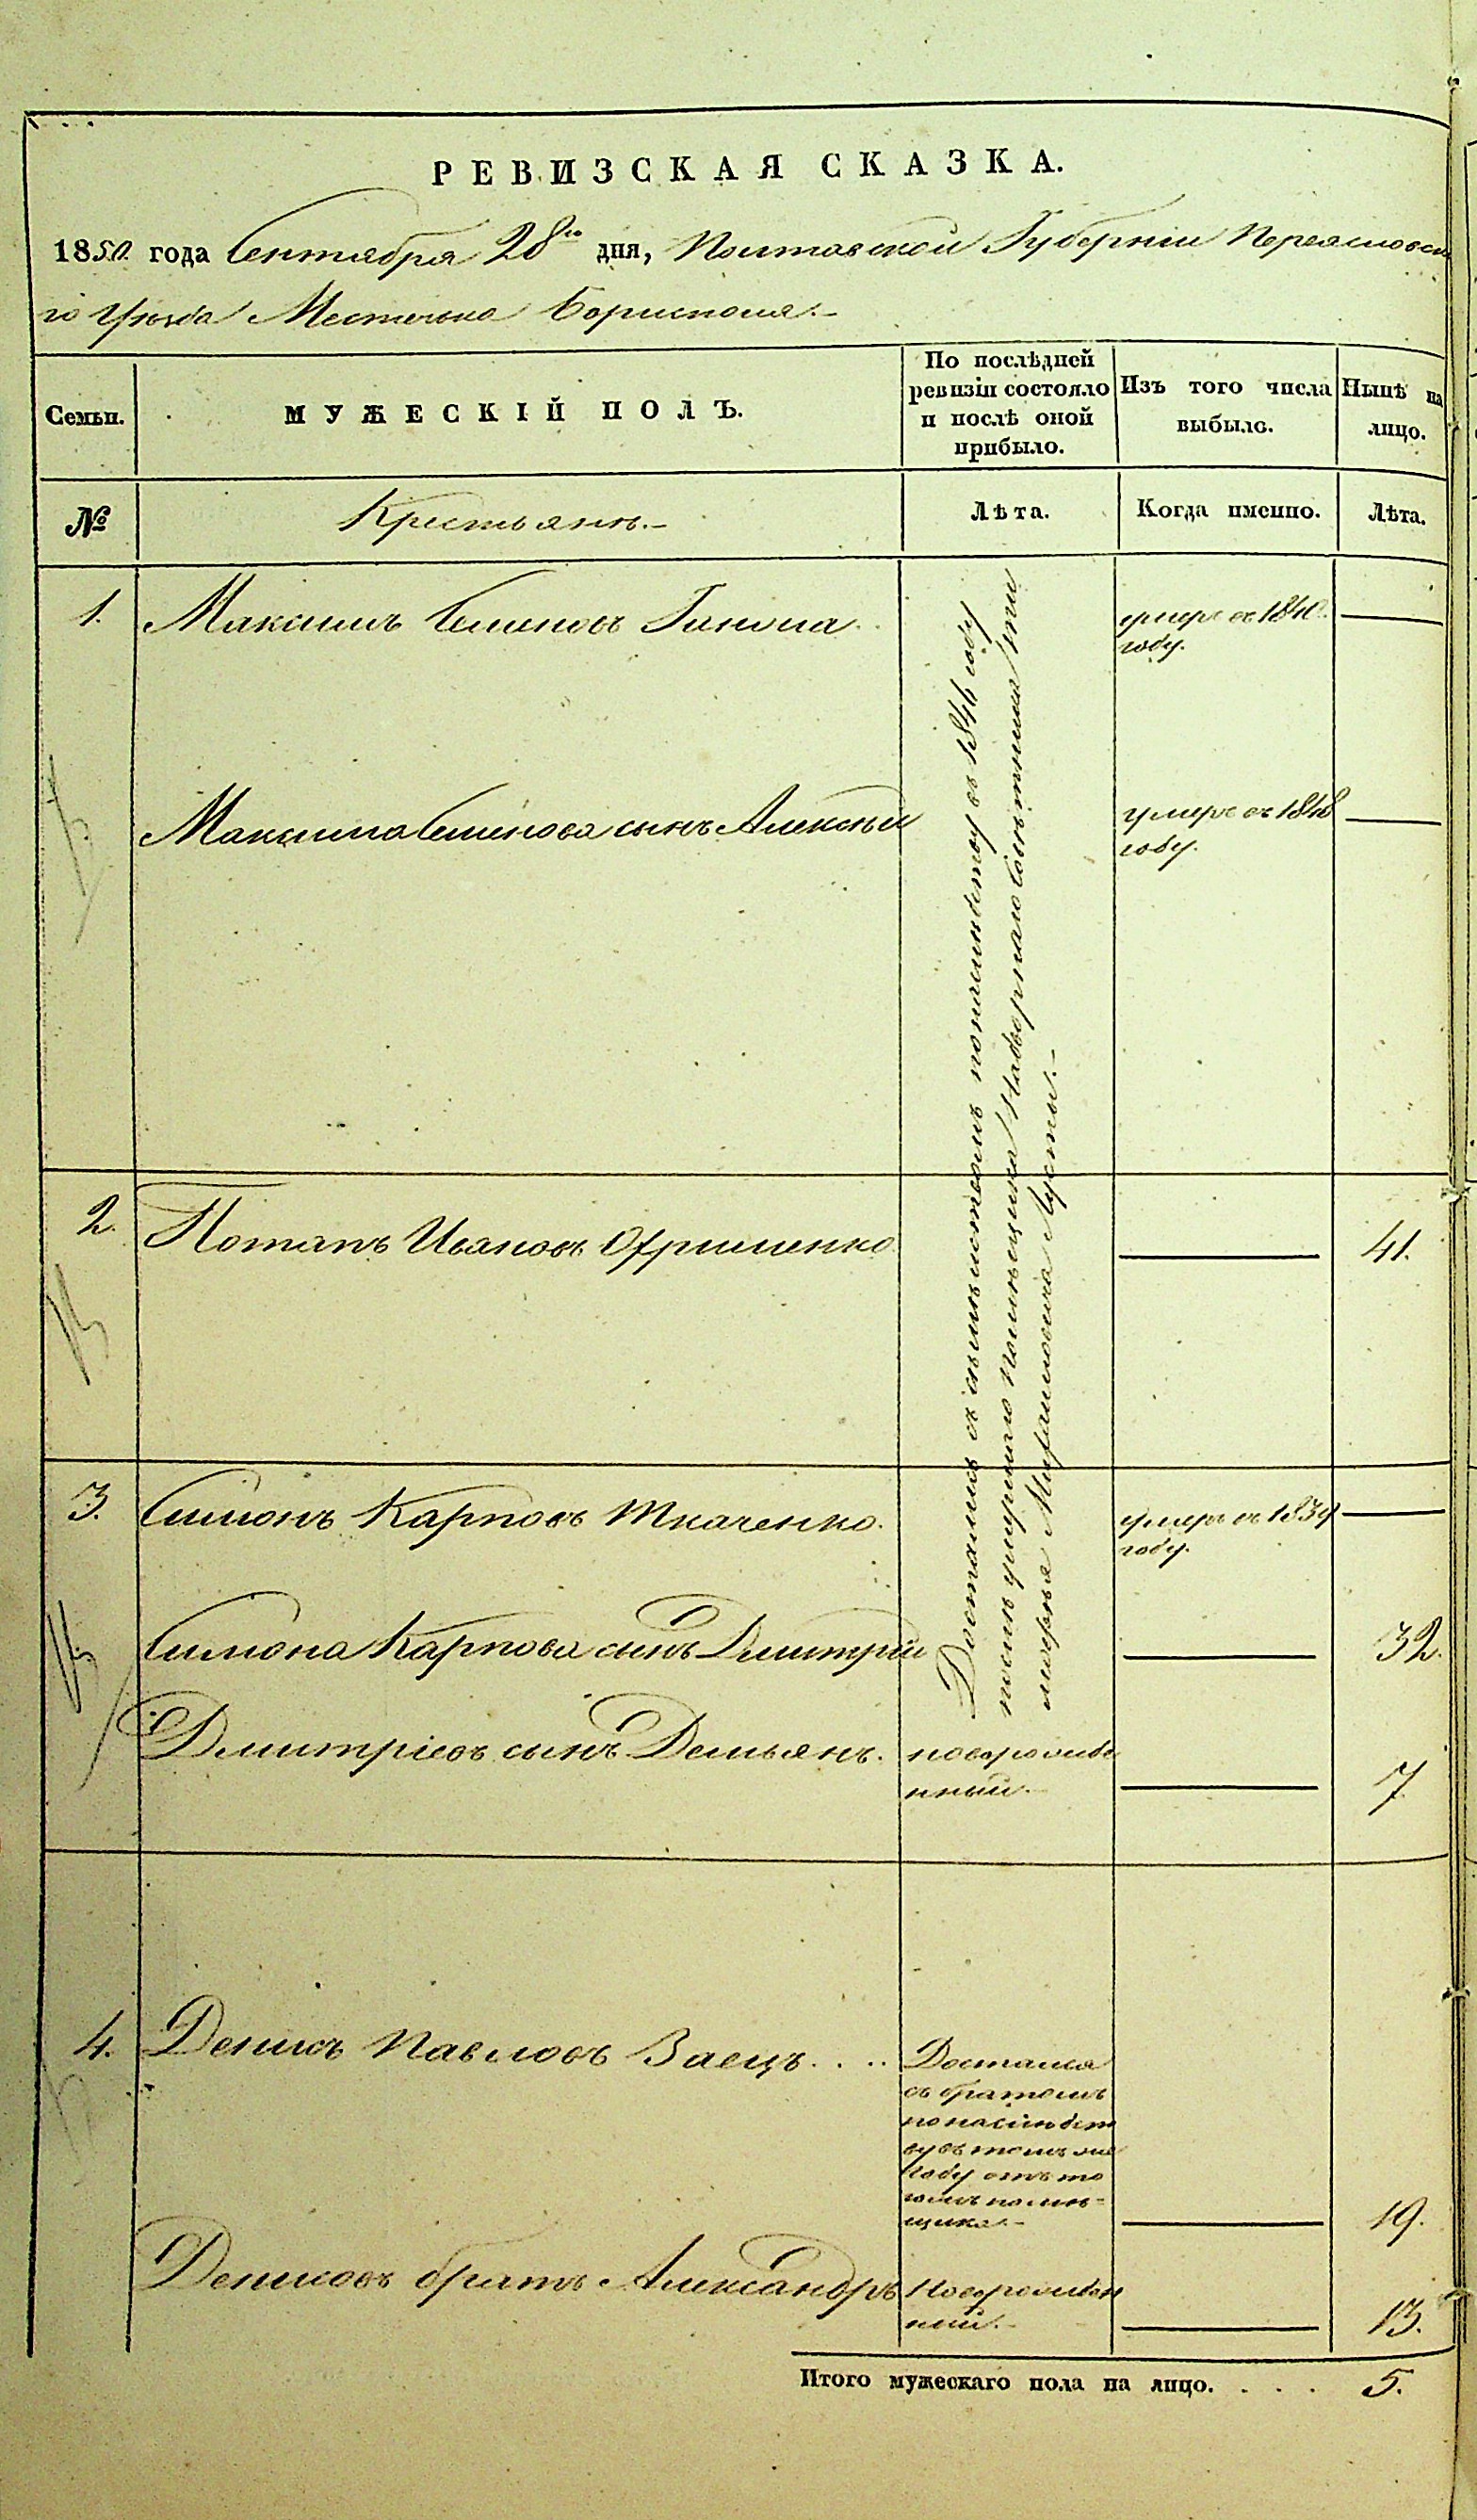 РЕВИЗСКАЯ СКАЗКА.
1850 года Сентября 28го дня, Полтавской Губерніи Переясловска
го Уѣзда Местечка Борисполя.
Семьи.
МУЖЕСКІЙ ПОЛЪ.
По послѣдней
ревизіи состояло
и послѣ оной
прибыло.
Изъ того числа
выбыло.
Нынѣ на
лицо.
№
Крестьянъ.
Лѣта.
Когда именно.
Лѣта.
1. Максимъ Семеновъ
умеръ въ 1840
году.
Максима Семенова сынъ Алексѣй
умеръ въ 1848
году.
Достались съ семействомъ по наслѣдству въ 1846 году
послѣ умершаго помѣщика Надворнаго Совѣтника
Лусты.
2. Потапъ Ивановъ Офрименко
41.
3. Симонъ Карповъ Ткаченко.
умеръ въ 1839
году.
Симона Карпова сынъ Дмитрій
32.
Дмитріевъ сынъ Демьянъ.
новорожде
нный.
7
4. Денисъ Павловъ Заецъ....
Достался
съ братомъ
по наслѣдст
ву въ томъ же
году отъ то
гожъ помѣ-
щика.
19.
Денисовъ братъ Александръ
Новорожден
ный.
13.
Итого мужескаго пола на лицо. . . . 5.